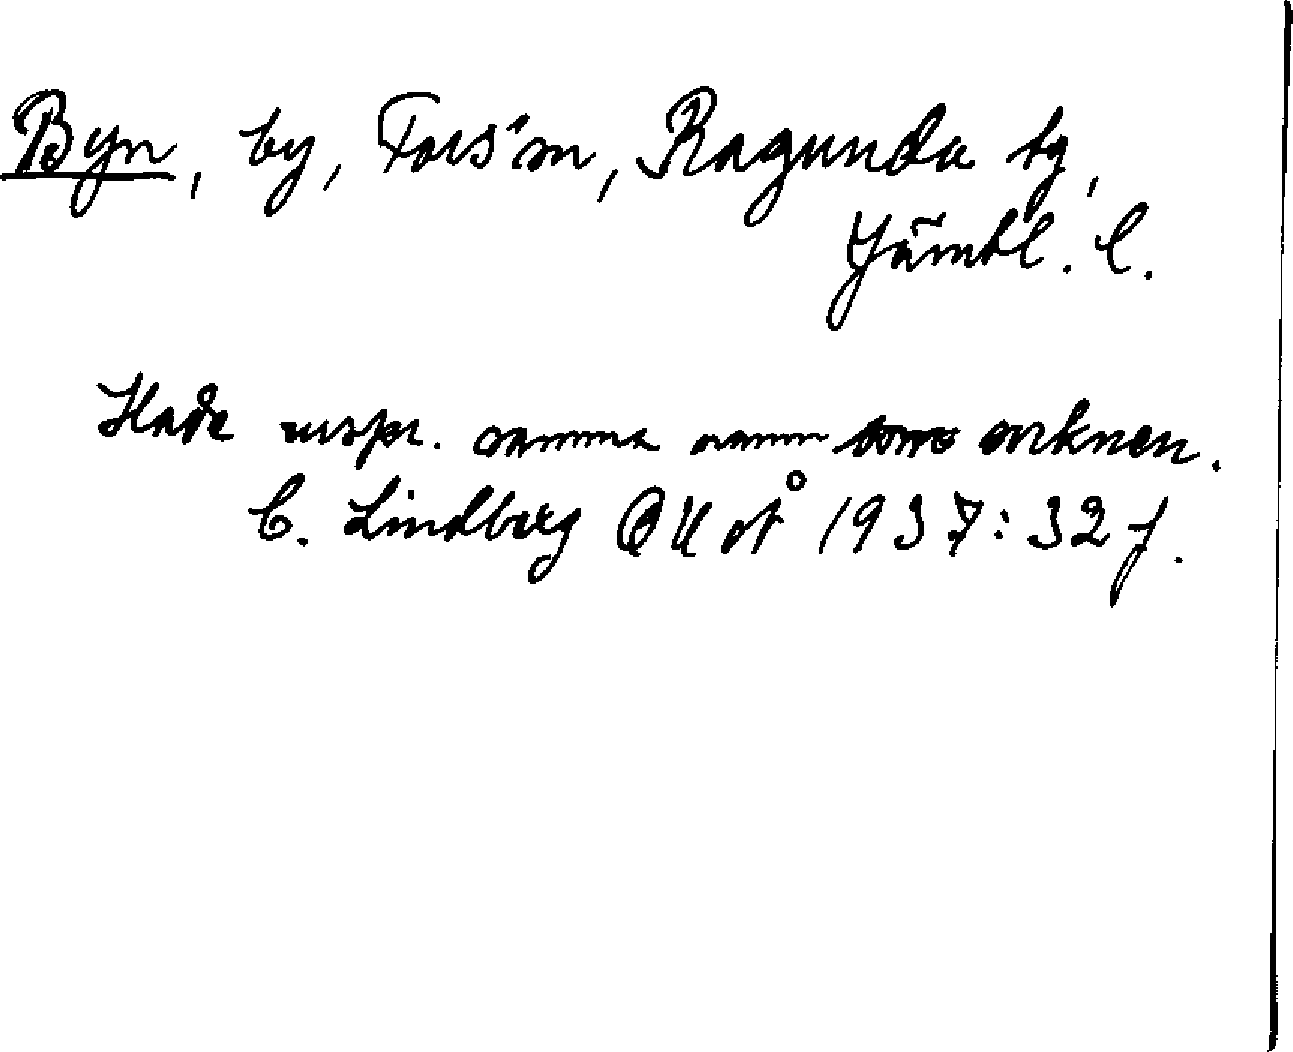 Byn, by, Fors sn, Ragunda tg,
Jämtl. l.
Hade urspr. samma namn som socknen.
C. Lindberg OUÅ 1937: 32 f.